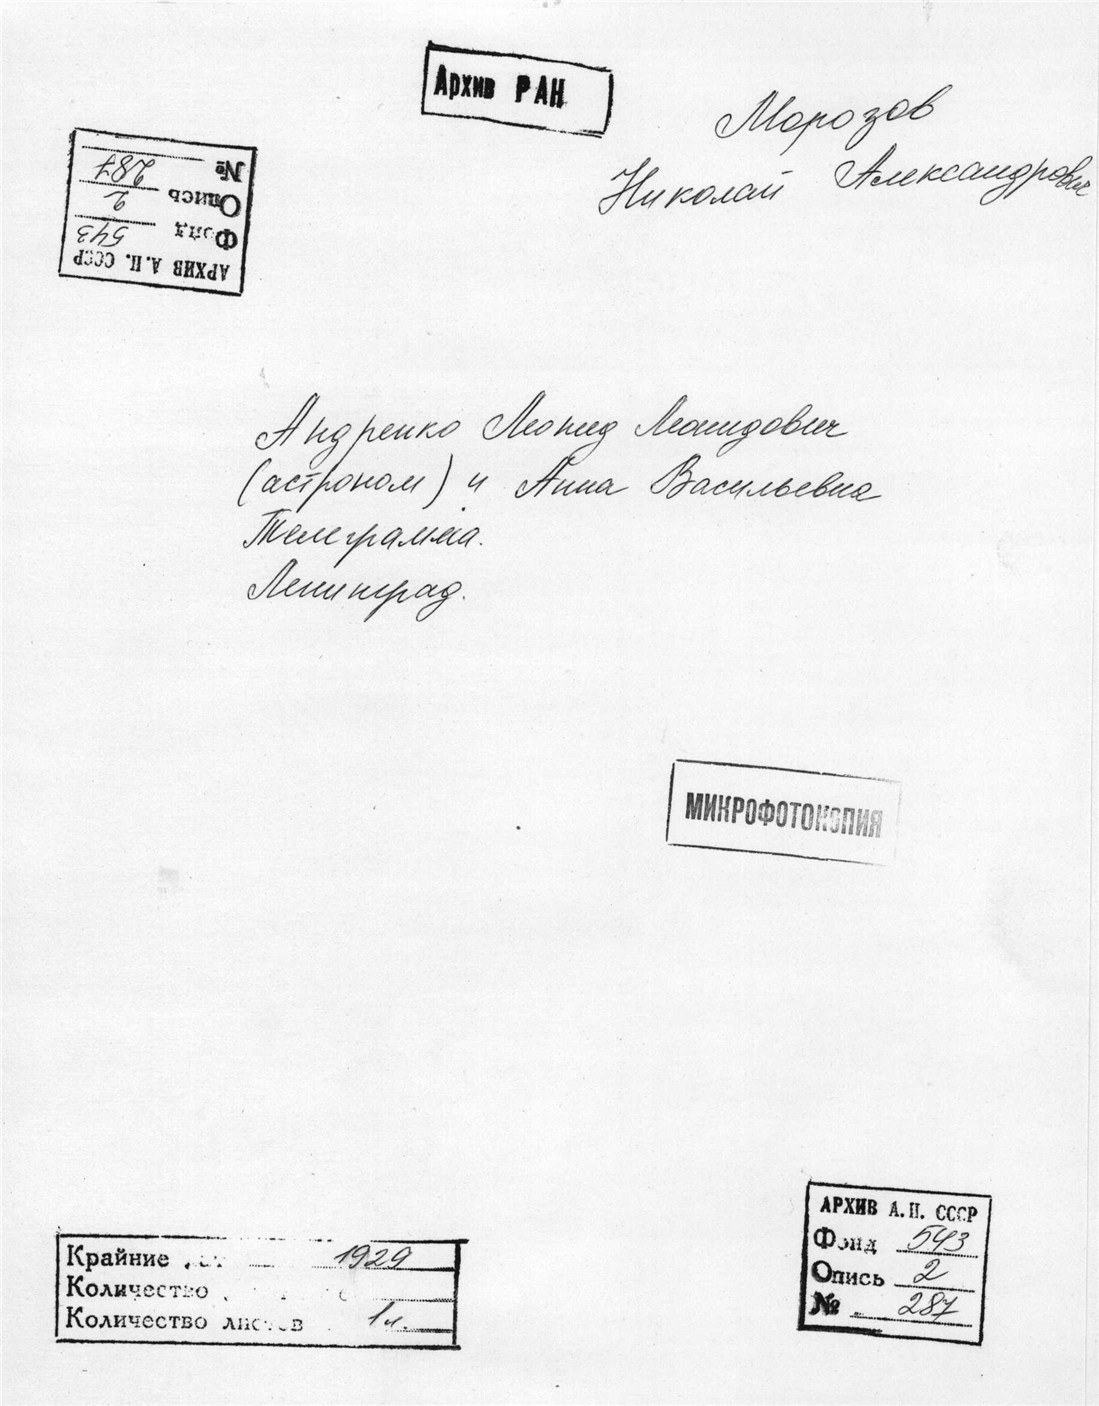 Архив РАН
Морозов
Николай Александрович
№ 287
Опись 2
Фонд 543
АРХИВ А.Н. СССР
Андренко Леонид Леонидович
(астроном) и Анна Васильевна
Телеграмма.
Ленинград.
МИКРОФОТОКОПИЯ
Крайние 1929
Количество
Количество листов 1л.
АРХИВ А.Н. СССР
Фонд 543
Опись 2
№ 287